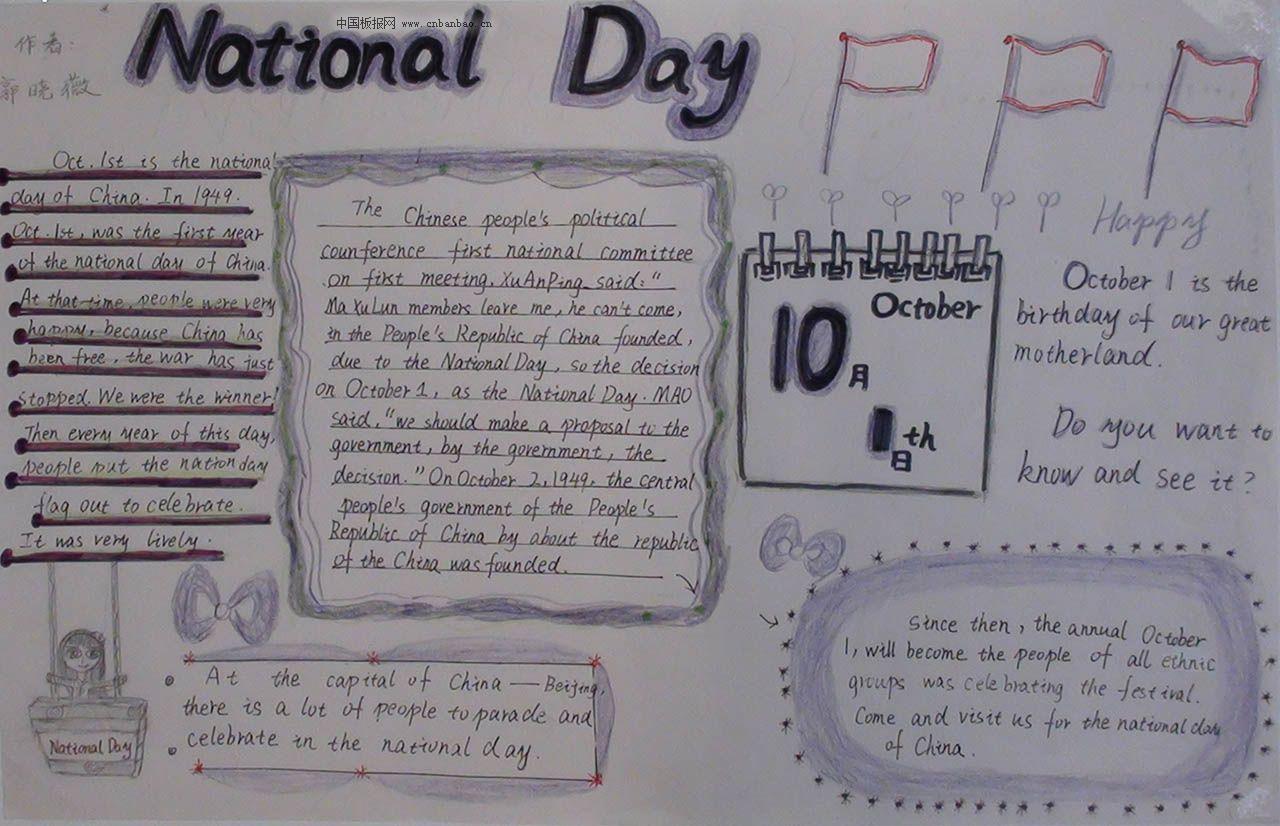 中国板报网 www.cnbanbao.cn
National Day
作者:
郭晓薇
Oct. 1st is the national
day of China. In 1949.
Oct. 1st, was the first year
of the national day of China.
At that time, people were very
happy, because China has
been free, the war has just
stopped. We were the winner!
Then every year of this day,
people put the nation day
flag out to celebrate.
It was very lively.
The Chinese people's political
counference first national committee
on first meeting, XuAnPing said: "
Ma XuLun members leave me, he can't come,
in the People's Republic of China founded,
due to the National Day, so the decision
on October 1, as the National Day. MAO
said, "we should make a proposal to the
government, by the government, the
decision." On October 2, 1949, the central
people's government of the People's
Republic of China by about the republic
of the China was founded.
October
10月
1th
日
Happy
October 1 is the
birthday of our great
motherland.
Do you want to
know and see it?
National Day
At the capital of China — Beijing,
there is a lot of people to parade and
celebrate in the national day.
Since then, the annual October
1, will become the people of all ethnic
groups was celebrating the festival.
Come and visit us for the national day
of China.